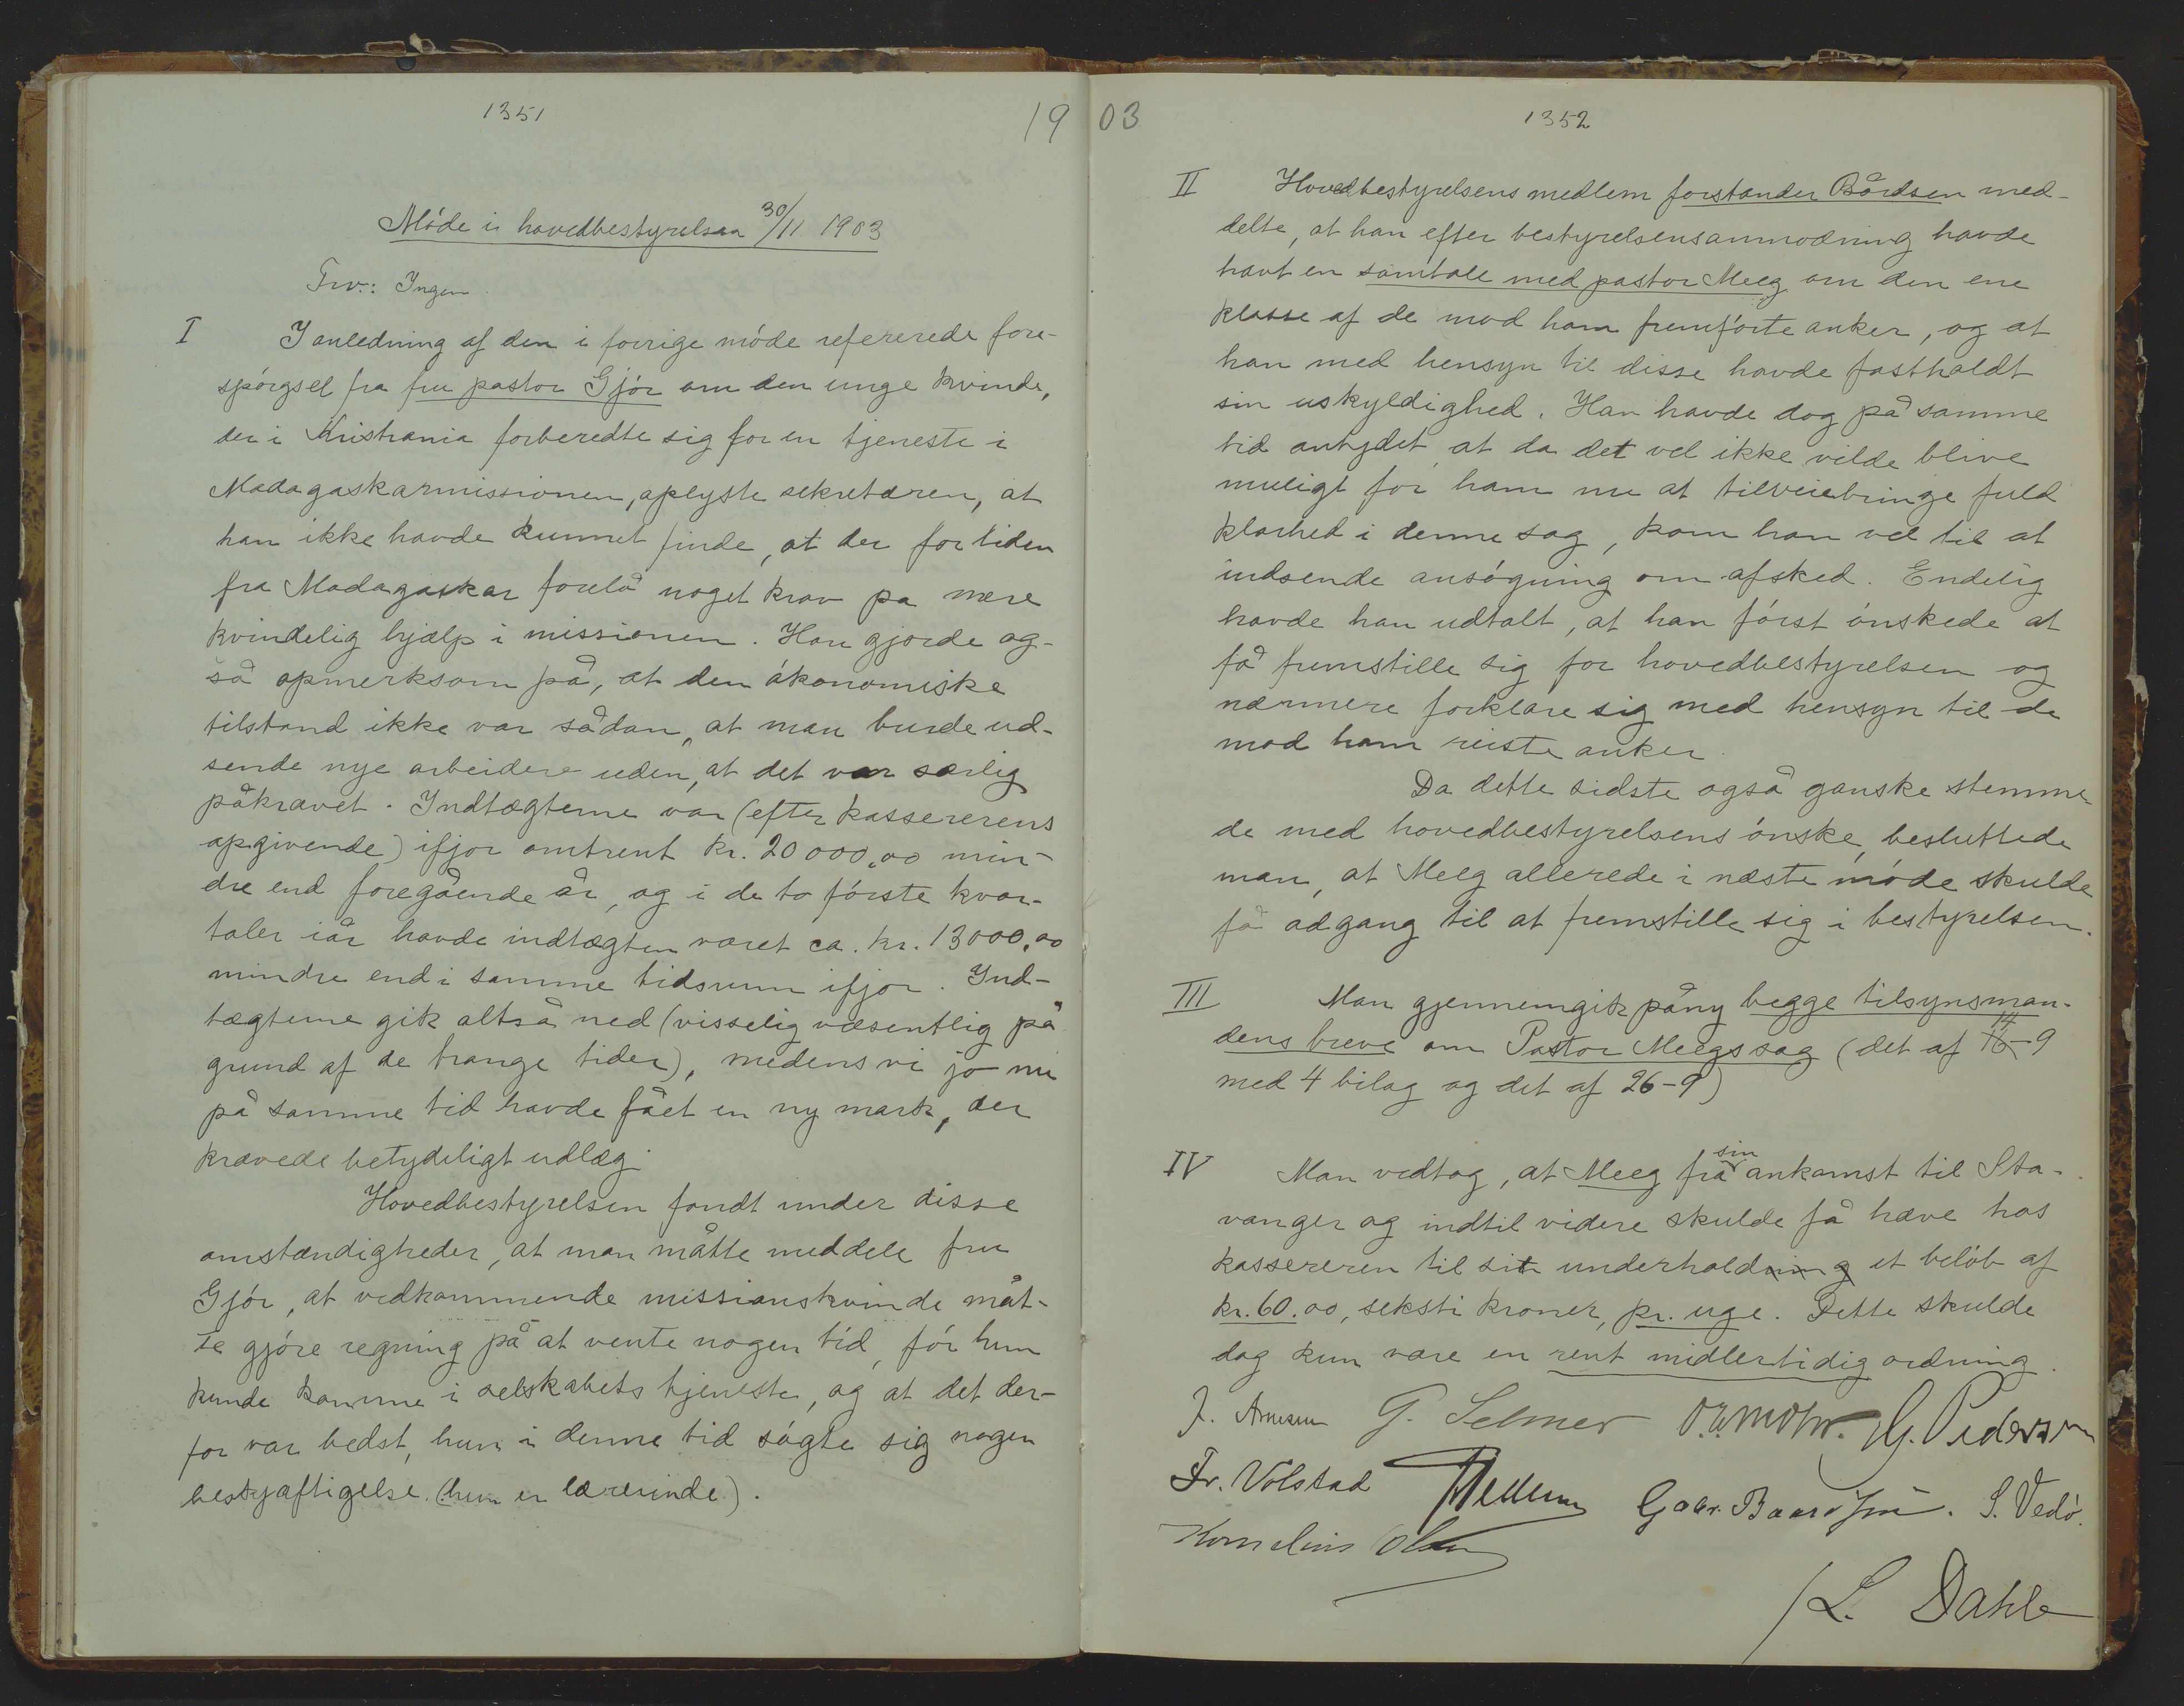 1351
1903
Móde i hovedbestyrelsen 30/11 1903
Frv.: Ingen
I I anledning af den i forrige móde refererede fore-
spórgsel fra fru pastor Gjór om den unge kvinde,
der i Kristiania forberedte sig for en tjeneste i
Madagaskarmissionen, oplyste sekretæren, at
han ikke havde kunnet finde, at der for tiden
fra Madagaskar forelå noget krav pa mere
kvindelig hjælp i missionen. Han gjorde og-
så opmerksom på, at den ókonomiske
tilstand ikke var sådan, at man burde ud-
sende nye arbeidere uden, at det var særlig
påkrævet. Indtægterne var (efter kassererens
opgivende) ifjor omtrent kr. 20 000,00 min-
dre end foregående år, og i de to fórste kvar-
taler iår havde indtægten været ca. kr. 13000,00
mindre end i samme tidsrum ifjor. Ind-
tægterne gik altså ned (visselig væsentlig på
grund af de trange tider), medens vi jo nu
på samme tid havde fået en ny mark, der
krævede betydeligt udlæg.
Hovedbestyrelsen fandt under disse
omstændigheder, at man måtte meddele fru
Gjór, at vedkommende missionskvinde måt-
te gjóre regning på at vente nogen tid, fór hun
kunde komme i selskabets tjeneste, og at det der-
for var bedst, hun i denne tid sógte sig nogen
beskjæftigelse. (hun er lærerinde).
1352
II Hovedbestyrelsens medlem forstander Bårdsen med-
delte, at han efter bestyrelsens anmodning havde
havt en samtale med pastor Meeg om den ene
klasse af de mod ham fremfórte anker, og at
han med hensyn til disse havde fastholdt
sin uskyldighed. Han havde dog på samme
tid antydet, at da det vel ikke vilde blive
muligt for ham nu at tilveiebringe fuld
klarhed i denne sag, kom han vel til at
indsende ansógning om afsked. Endelig
havde han udtalt, at han fórst ónskede at
få fremstille sig for hovedbestyrelsen og
nærmere forklare sig med hensyn til de
mod ham reiste anker.
Da dette sidste også ganske stemme-
de med hovedbestyrelsens ónske, besluttede
man, at Meeg allerede i næste móde skulde
få adgang til at fremstille sig i bestyrelsen.
III Man gjennemgik påny begge tilsynsman-
dens breve om Pastor Meegs sag (det af 14-9
med 4 bilag og det af 26-9)
IV Man vedtog, at Meeg fra sin ankomst til Sta-
vanger og indtil videre skulde få hæve hos
kassereren til sit underhold et belób af
kr. 60.00, seksti kroner, pr. uge. Dette skulde
dog kun være en rent midlertidig ordning.
J. Arnesen G. Selmer G. Pedersen
Fr. Volstad Gabr. Baardsen. S. Vedó.
Kornelius Olsen
L. Dahle